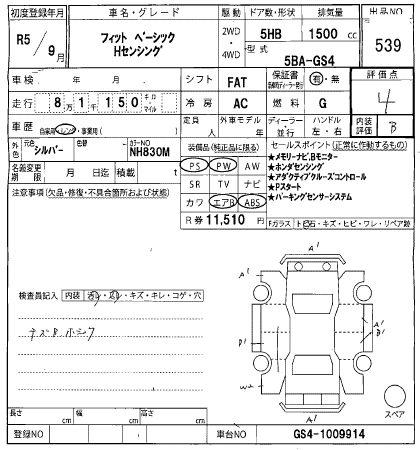 初度登録年月 車名・グレード 駆動 ドア数・形状 排気量 出品NO
R5/9月 フィット ベーシック Hセンシング 2WD・4WD 5HB 1500 cc 539
型式 5BA-GS4
車検 年 月 シフト FAT 保証書 有・無 評価点
走行 8万1千150 キロ・マイル 冷房 AC 燃料 G 4
車歴 自家用・レンタ・事業用( ) 定員 人 外車モデル 年 ディーラー 並行 ハンドル 左・右 内装評価 B
外色 元色 シルバー 色替 カラーNO NH830M 装備品(純正品に限る) セールスポイント(正常に作動するもの)
名義変更期限 月 日迄 積載 t PS PW AW ★メモリーナビ,Bモニター
注意事項(欠品・修復・不具合箇所および状態) SR TV ナビ ★ホンダセンシング
カワ エアB ABS ★アダプティブクルーズコントロール
★Pスタート
★パーキングセンサーシステム
R券 11,510 円 Fガラス ト石・キズ・ヒビ・ワレ・リペア跡
検査員記入 内装 汚レ・コゲ・穴
キズB ホシワ
A'
A'
A'
B'
B'
W2
A'
スペア
長さ cm 幅 cm 高さ cm
登録NO 車台NO GS4-1009914